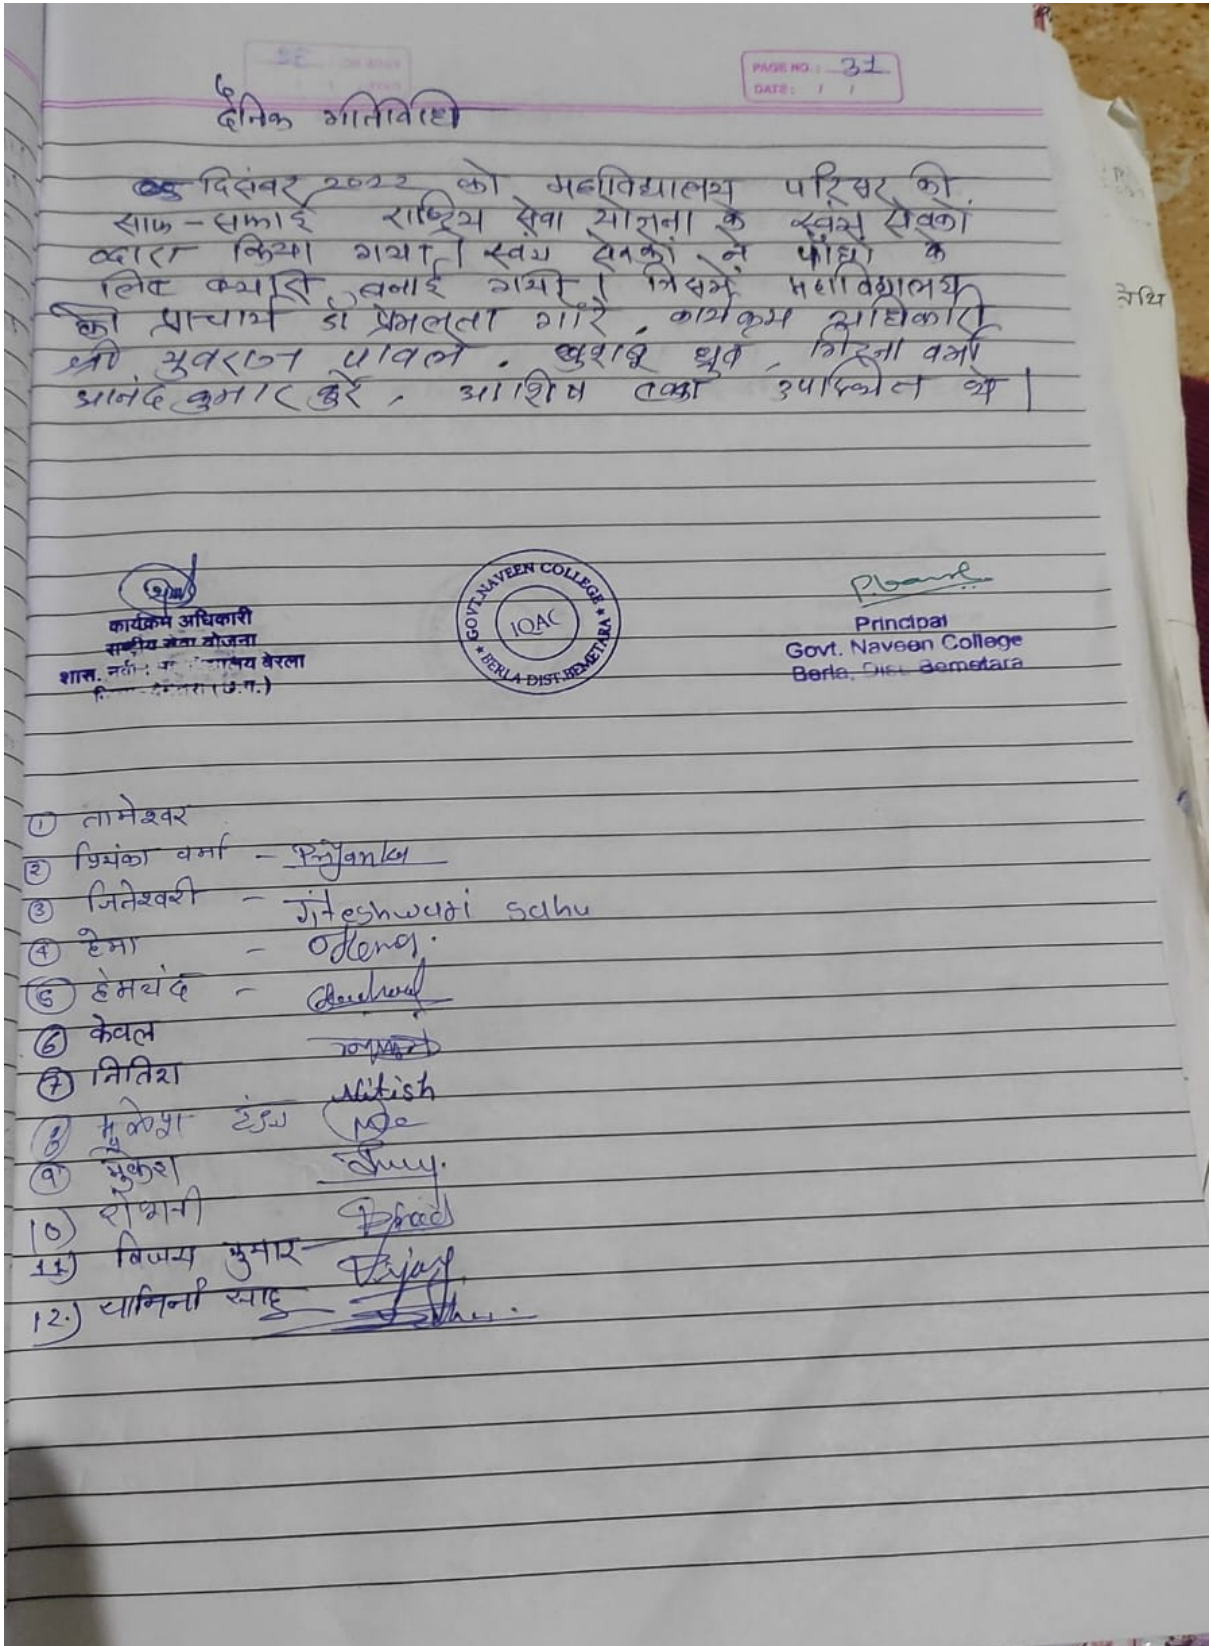 PAGE NO.: 31
DATE: / /
दैनिक गतिविधि
05 दिसंबर 2022 को महाविद्यालय परिसर की
साफ-सफाई राष्ट्रिय सेवा योजना के स्वयं सेवकों
द्वारा किया गया। स्वयं सेवकों ने पौधों के
लिए क्यारी बनाई गयी। जिसमें महाविद्यालय
के प्राचार्य डॉ प्रेमलता गौरे, कार्यक्रम अधिकारी
श्री युवराज पावले, खुशबू ध्रुव, वर्मा
आनंद कुमार कुर्रे, आशिष उपस्थित थे।
कार्यक्रम अधिकारी
राष्ट्रीय सेवा योजना
शास. बेरला
GOVT. NAVEEN COLLEGE
IQAC
BERLA DIST. BEMETARA
Principal
Govt. Naveen College
Berla, Dist. Bemetara
① तामेश्वर
② प्रियंका वर्मा - Priyanka
③ जितेश्वरी - Jiteshwari sahu
④ हेमा - Hema.
⑤ हेमचंद -
⑥ केवल
⑦ नितिश Nitish
⑧ मुकेश
⑨ मुकेश
10) रोशनी
11) विजय कुमार - Vijay
12.) यामिनी साहू